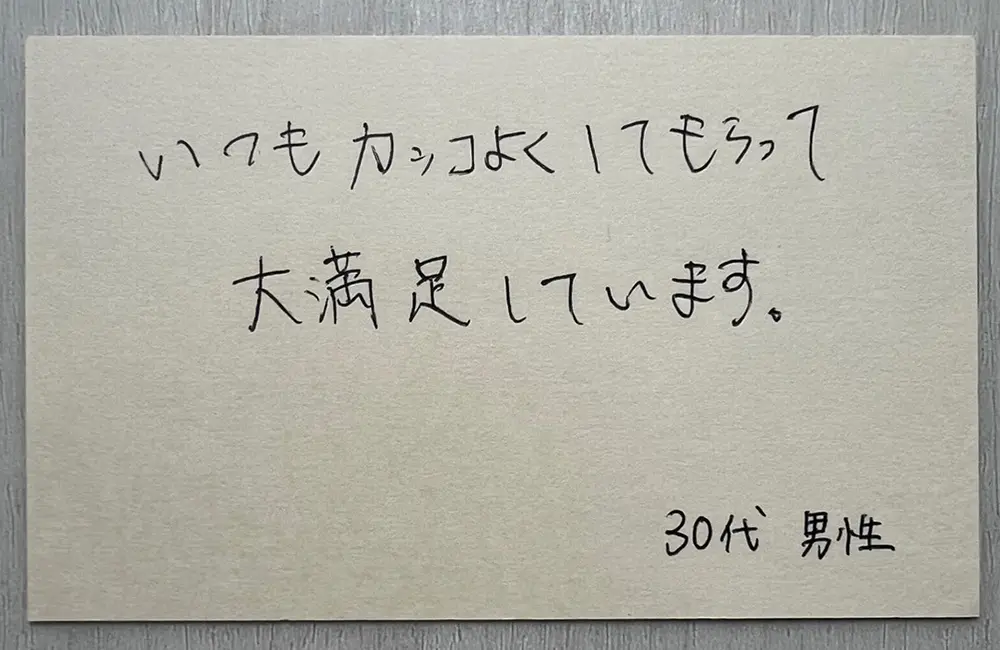 いつもカッコよくしてもらって
大満足しています。
30代 男性